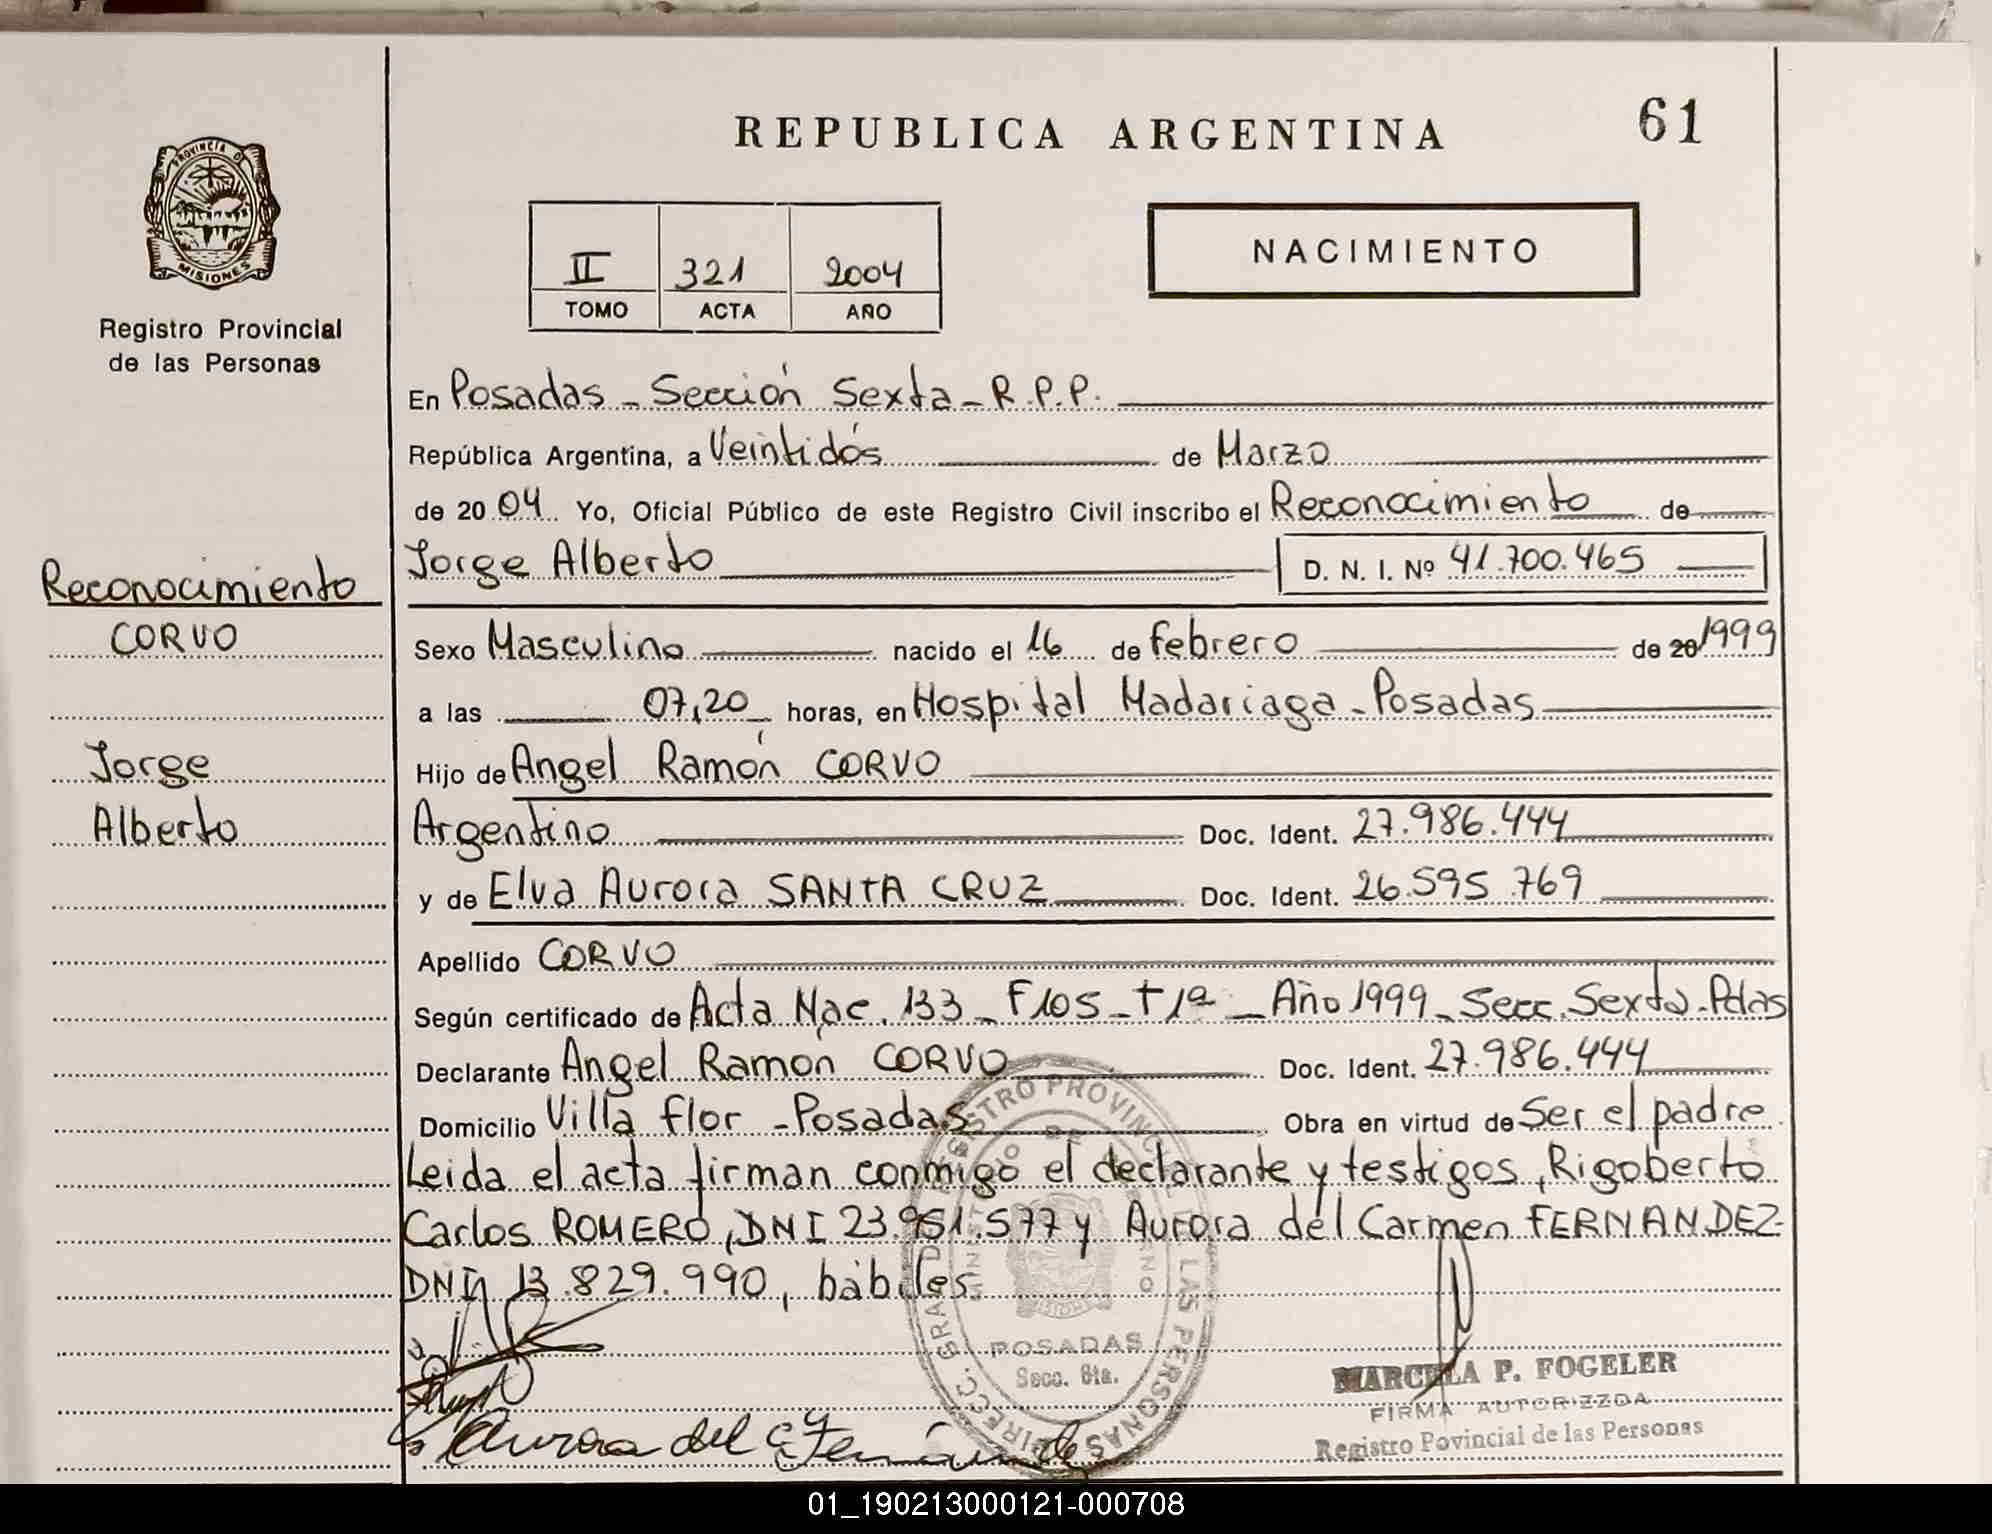 REPUBLICA ARGENTINA
61
PROVINCIA DE
MISIONES
Registro Provincial
de las Personas
II 321 2004
TOMO ACTA AÑO
NACIMIENTO
En Posadas - Sección Sexta - R.P.P.
República Argentina, a Veintidós de Marzo
de 2004 Yo, Oficial Público de este Registro Civil inscribo el Reconocimiento de
Jorge Alberto D. N. I. Nº 41.700.465
Reconocimiento
CORVO
Jorge
Alberto
Sexo Masculino nacido el 16 de febrero de 20 1999
a las 07,20 horas, en Hospital Madariaga - Posadas
Hijo de Angel Ramón CORVO
Argentino Doc. Ident. 27.986.444
y de Elva Aurora SANTA CRUZ Doc. Ident. 26.595.769
Apellido CORVO
Según certificado de Acta Nac. 133 - F105 - T1ª - Año 1999 - Secc. Sexta - Pdas
Declarante Angel Ramón CORVO Doc. Ident. 27.986.444
Domicilio Villa flor - Posadas Obra en virtud de Ser el padre
Leida el acta firman conmigo el declarante y testigos, Rigoberto
Carlos ROMERO, DNI 23.951.577 y Aurora del Carmen FERNANDEZ
DNI 13.829.990, hábiles
DIRECC. GRAL. DE REGISTRO PROVINCIAL DE LAS PERSONAS
MINISTERIO DE GOBIERNO
POSADAS
Secc. 6ta.
MARCELA P. FOGELER
FIRMA AUTORIZZDA
Registro Povincial de las Personas
Aurora del C. Fernández
01_190213000121-000708